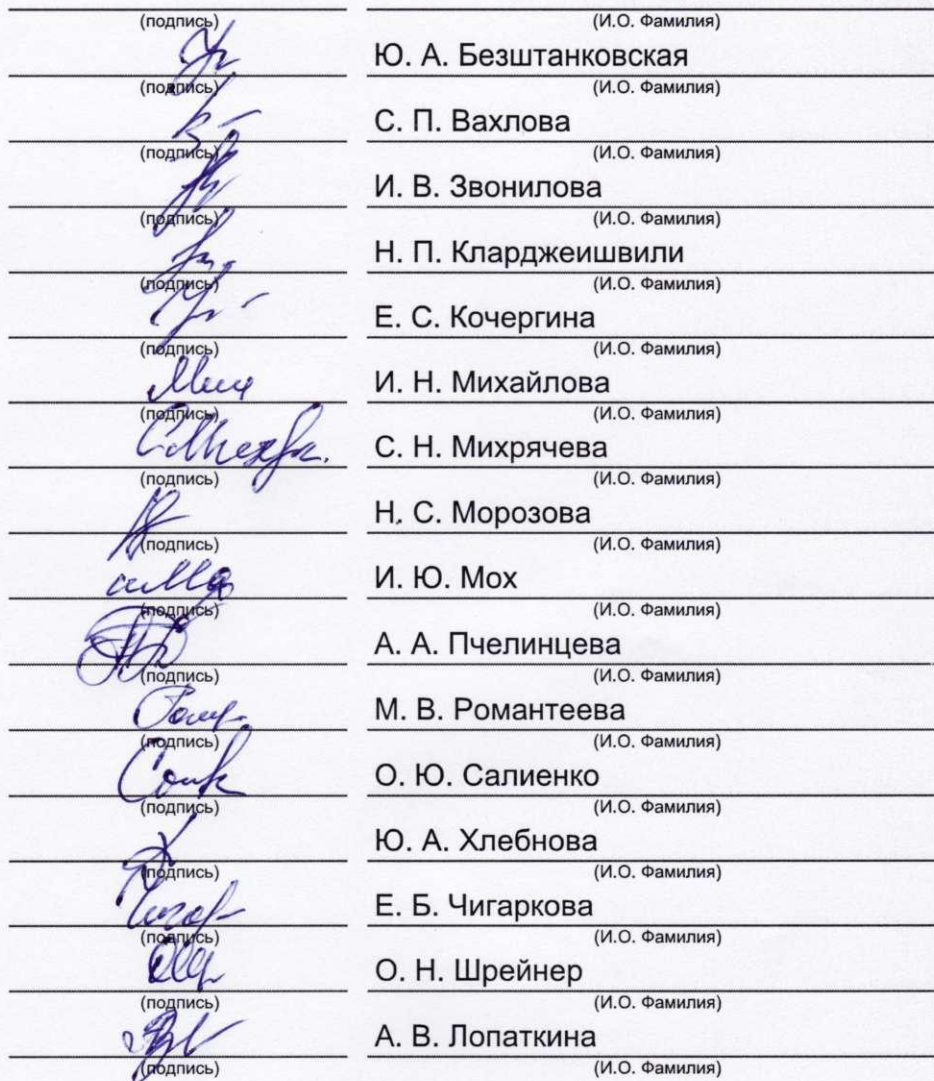 (подпись) (И.О. Фамилия)
Ю. А. Безштанковская
(подпись) (И.О. Фамилия)
С. П. Вахлова
(подпись) (И.О. Фамилия)
И. В. Звонилова
(подпись) (И.О. Фамилия)
Н. П. Кларджеишвили
(подпись) (И.О. Фамилия)
Е. С. Кочергина
(подпись) (И.О. Фамилия)
И. Н. Михайлова
(подпись) (И.О. Фамилия)
С. Н. Михрячева
(подпись) (И.О. Фамилия)
Н. С. Морозова
(подпись) (И.О. Фамилия)
И. Ю. Мох
(подпись) (И.О. Фамилия)
А. А. Пчелинцева
(подпись) (И.О. Фамилия)
М. В. Романтеева
(подпись) (И.О. Фамилия)
О. Ю. Салиенко
(подпись) (И.О. Фамилия)
Ю. А. Хлебнова
(подпись) (И.О. Фамилия)
Е. Б. Чигаркова
(подпись) (И.О. Фамилия)
О. Н. Шрейнер
(подпись) (И.О. Фамилия)
А. В. Лопаткина
(подпись) (И.О. Фамилия)